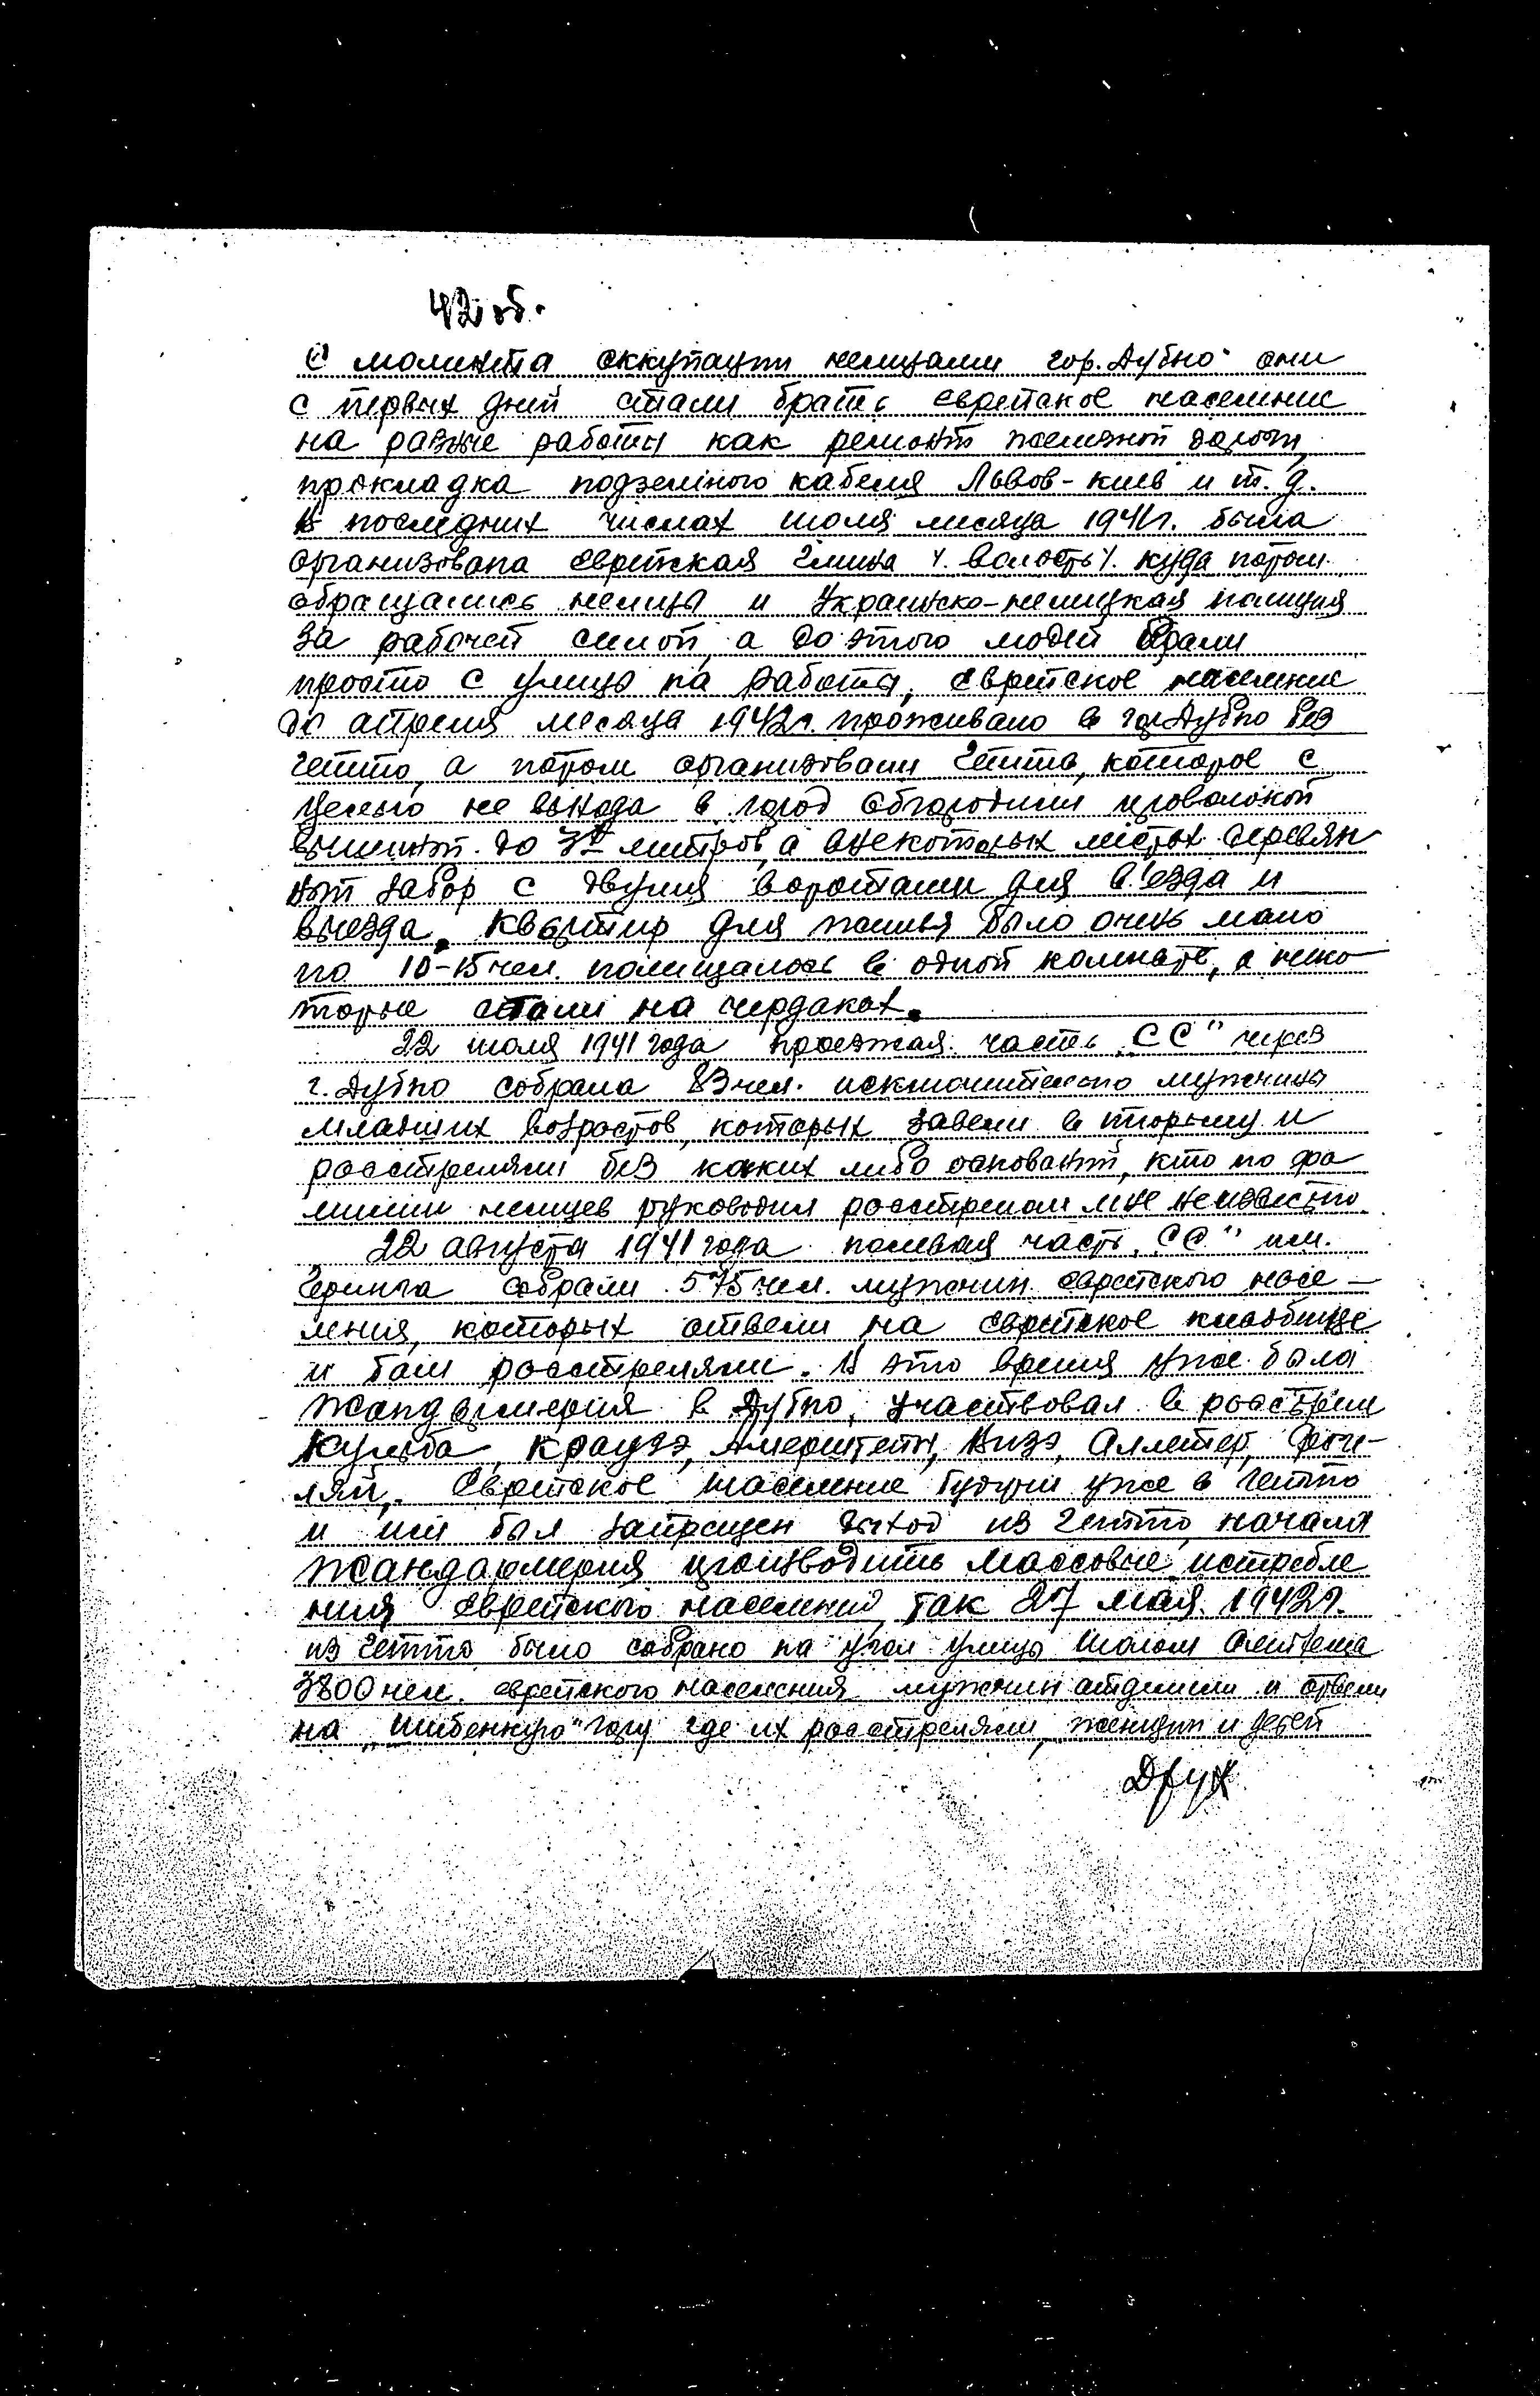 42 об.
С момента оккупации немцами гор. Дубно они
с первых дней стали брать еврейское население
на разные работы как ремонт железной дороги,
прокладка подземного кабеля Львов-Киев и т. д.
В последних числах июля месяца 1941г. была
организована еврейская гмина /. волость /. куда потом
обращались немцы и Украинско-немецкая полиция
за рабочей силой, а до этого людей брали
просто с улицы на работы, еврейское население
до апреля месяца 1942г. проживало в гор. Дубно без
гетто, а потом организовали гетто, которое с
целью не выхода в город обгородили проволокой
вышиной до 3х метров, а в некоторых местах деревян
ной забор с двумя воротами для в'езда и
выезда. Квартир для жилья было очень мало
по 10-15 чел. помещалось в одной комнате, а неко
торые спали на чердаках.
22 июля 1941 года проезжая часть „СС" через
г. Дубно собрала 83 чел. исключительно мужчины
младших возрастов, которых завели в тюрьму и
расстреляли без каких либо оснований, кто по фа
милии немцев руководил расстрелом мне неизвестно
22 августа 1941 года полевая часть „СС" им.
Геринга собрали 575 чел. мужчин еврейского насе-
ления, которых отвели на еврейское кладбище
и там расстреляли. В это время уже была
жандармерия в Дубно, участвовал в расстреле
Краузэ, Визэ,
Еврейское население будучи уже в гетто
и им был запрещен выход из гетто, начала
жандармерия производить массовые истребле
ния еврейского населения, так 27 мая 1942г.
из гетто было собрано на угол улицы Шолом Алейхема
3800 чел. еврейского населения мужчин отделили и отвели
на „Шибенную" гору где их расстреляли, женщин и детей
Друх